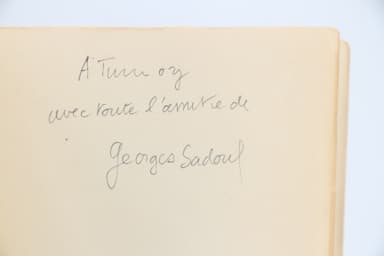 À
avec toute l'amitié de
Georges Sadoul